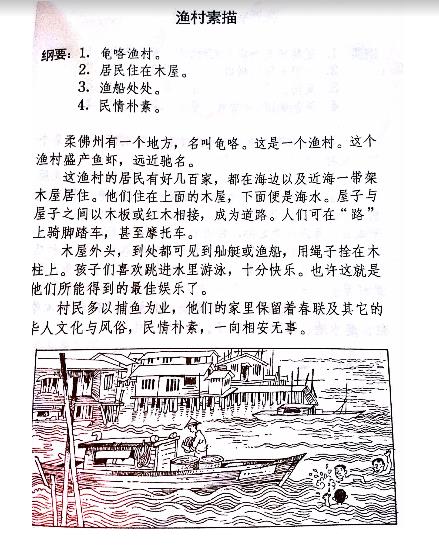 渔村素描
纲要：1. 龟咯渔村。
2. 居民住在木屋。
3. 渔船处处。
4. 民情朴素。
柔佛州有一个地方，名叫龟咯。这是一个渔村。这个
渔村盛产鱼虾，远近驰名。
这渔村的居民有好几百家，都在海边以及近海一带架
木屋居住。他们住在上面的木屋，下面便是海水。屋子与
屋子之间以木板或红木相接，成为道路。人们可在“路”
上骑脚踏车，甚至摩托车。
木屋外头，到处都可见到舢艇或渔船，用绳子拴在木
柱上。孩子们喜欢跳进水里游泳，十分快乐。也许这就是
他们所能得到的最佳娱乐了。
村民多以捕鱼为业，他们的家里保留着春联及其它的
华人文化与风俗，民情朴素，一向相安无事。